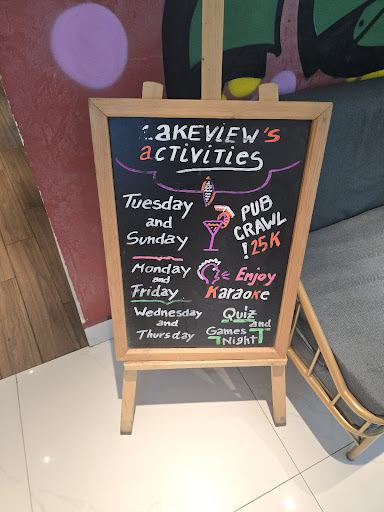 LAKEVIEW'S
aCTIVITIES
Tuesday
and
Sunday
PUB
CRAWL
! 25K
Monday
and
Friday
Enjoy
Karaoke
Wednesday
and
Thursday
Quiz
and
Games
Night